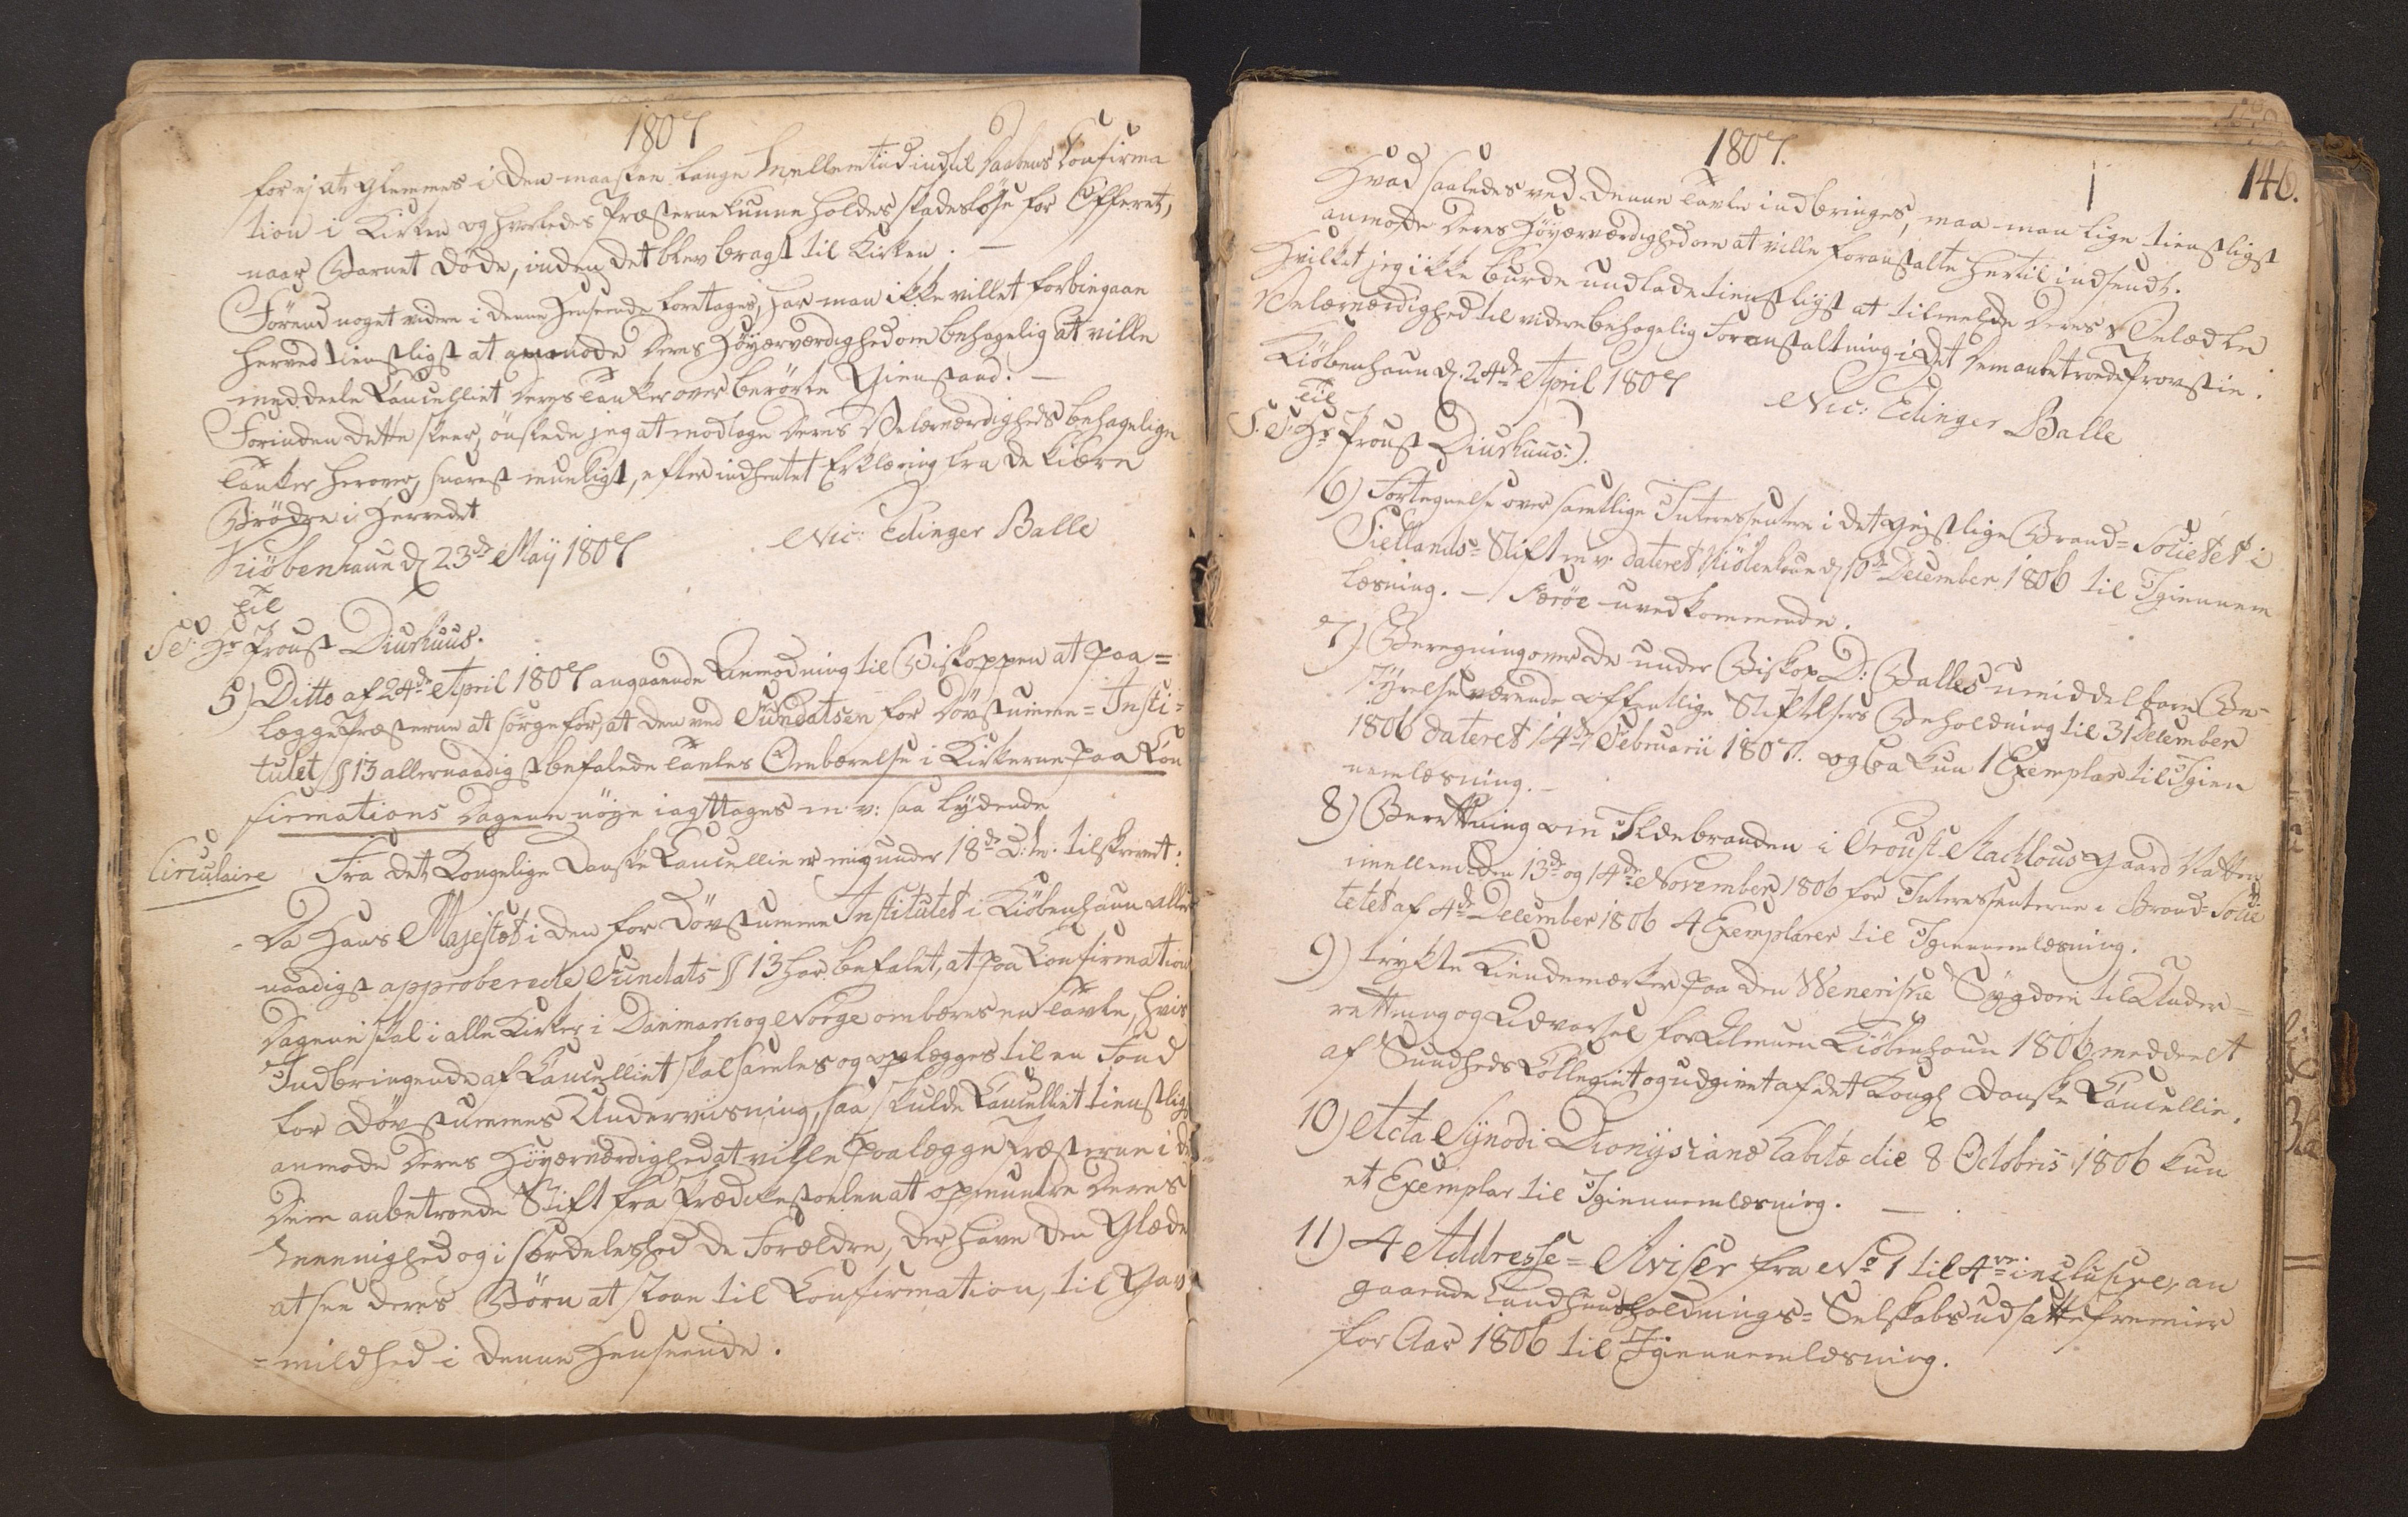 1807
for ej at glemmes i den maaskee lange Mellemtiid indtil Daabens Confirma
tion i Kirken og hvorledes Præsterne kunne holdes skadesløse for Offeret,
naar Barnet døde, inden det blev bragt til Kirken. —
Førend noget videre i denne Henseende foretages, har man ikke villet forbigaae
herved tienstligst at anmode Deres Høyærværdighed om behagelig at ville
meddeele Cancelliet Deres Tanker over berørte Gienstand. —
Forinden dette skeer, ønskede jeg at modtage Deres Velærværdigheds behagelige
Tanker herover, snarest mueligt, efter indhentet Erklæring fra de kiære
Brødre i Herredet
Kiøbenhaun d. 23de Maÿ 1807
Nic: Edinger Balle
Til
S. T. Hr Proust Diurhuus.
5) Ditto af 24de April 1807 angaaende Anmodning til Biskoppen at paa=
lægge Præsterne at sørge for, at den ved Fundatsen for Døvstumme=Insti=
tutet § 13 allernaadigst befalede Tavles Ombærelse i Kirkerne paa Con
firmations Dagene nøye iagttages m: v: saa lydende
Circulaire
Fra det Kongelige Danske Cancellie er mig under 18de d: M: tilskrevet:
Da Hans Majestet i den for Døvstumme Institutet i Kiøbenhaun aller
naadigst approberede Fundats § 13 har befalet, at paa Confirmations
Dagene skal i alle Kirker i Danmark og Norge ombæres en Tavle, hvis
Indbringende af Cancelliet skal samles og oplægges til en Fond
for Døvstummes Underviisning, saa skulde Cancelliet tienstligst
anmode Deres Høyærværdighed at ville paalægge Præsterne i det
Dem anbetroede Stift fra Prædikestoelen at opmuntre Deres
Meenighed og i særdeleshed de Forældre, der have den Glæde
at see deres Børn at staae til Confirmation, til Gav
=mildhed i denne Henseende.
1807.
146.
Hvad saaledes ved denne Tavle indbringes, maa man lige tienstligst
anmode Deres Høyærværdighed om at ville foranstalte hertil indsendt.
Hvilket jeg ikke burde undlade tienstligst at tilmelde Deres Velædle
Velærværdighed til videre behagelig Foranstaltning i det Dem anbetroede Provstie.
Kiöbenhaun d. 24de April 1807
Nic: Edinger Balle
Til
S. T. Hr Proust Diurhuus:).
6) Fortegnelse over samtlige Interessentere i det geistlige Brand=Societet i
Siellands=Stift m. v. dateret Kiöbenhaun d. 10de December 1806 til Igiennem
læsning. — Færöe uvedkommende.
7) Beregning over de under Biskop D: Balles umiddelbare Be-
styrelse værende offentlige Stiftelsers Beholdning til 31 December
1806 dateret 14de Februarii 1807. ogsaa kun 1 Exemplar til Igien
nemlæsning. —
8) Beretning om Ildebranden i Proust Rachlous Gaard Natten
imellem den 13de og 14de November 1806 for Interessenterne i Brand=Socie
tetet af 4de December 1806 4 Exemplarer til Igiennemlæsning.
9) trykte Kiendemærker paa den Veneriske Sygdom til Under=
retning og Advarsel for Almuen Kiøbenhaun 1806 meddeelt
af Sundheds Collegiet og udgivet af det Kongl. Danske Cancellie.
10) Acta Synodi Dionysianæ habitæ die 8 Octobris 1806 kun
et Exemplar til Igiennemlæsning. —
11) 4 Addresse=Aviser fra No 1 til 4re inclusive, an
gaaende Landhuusholdnings=Selskabs udsatte Premier
for Aar 1806 til Igiennemlæsning.